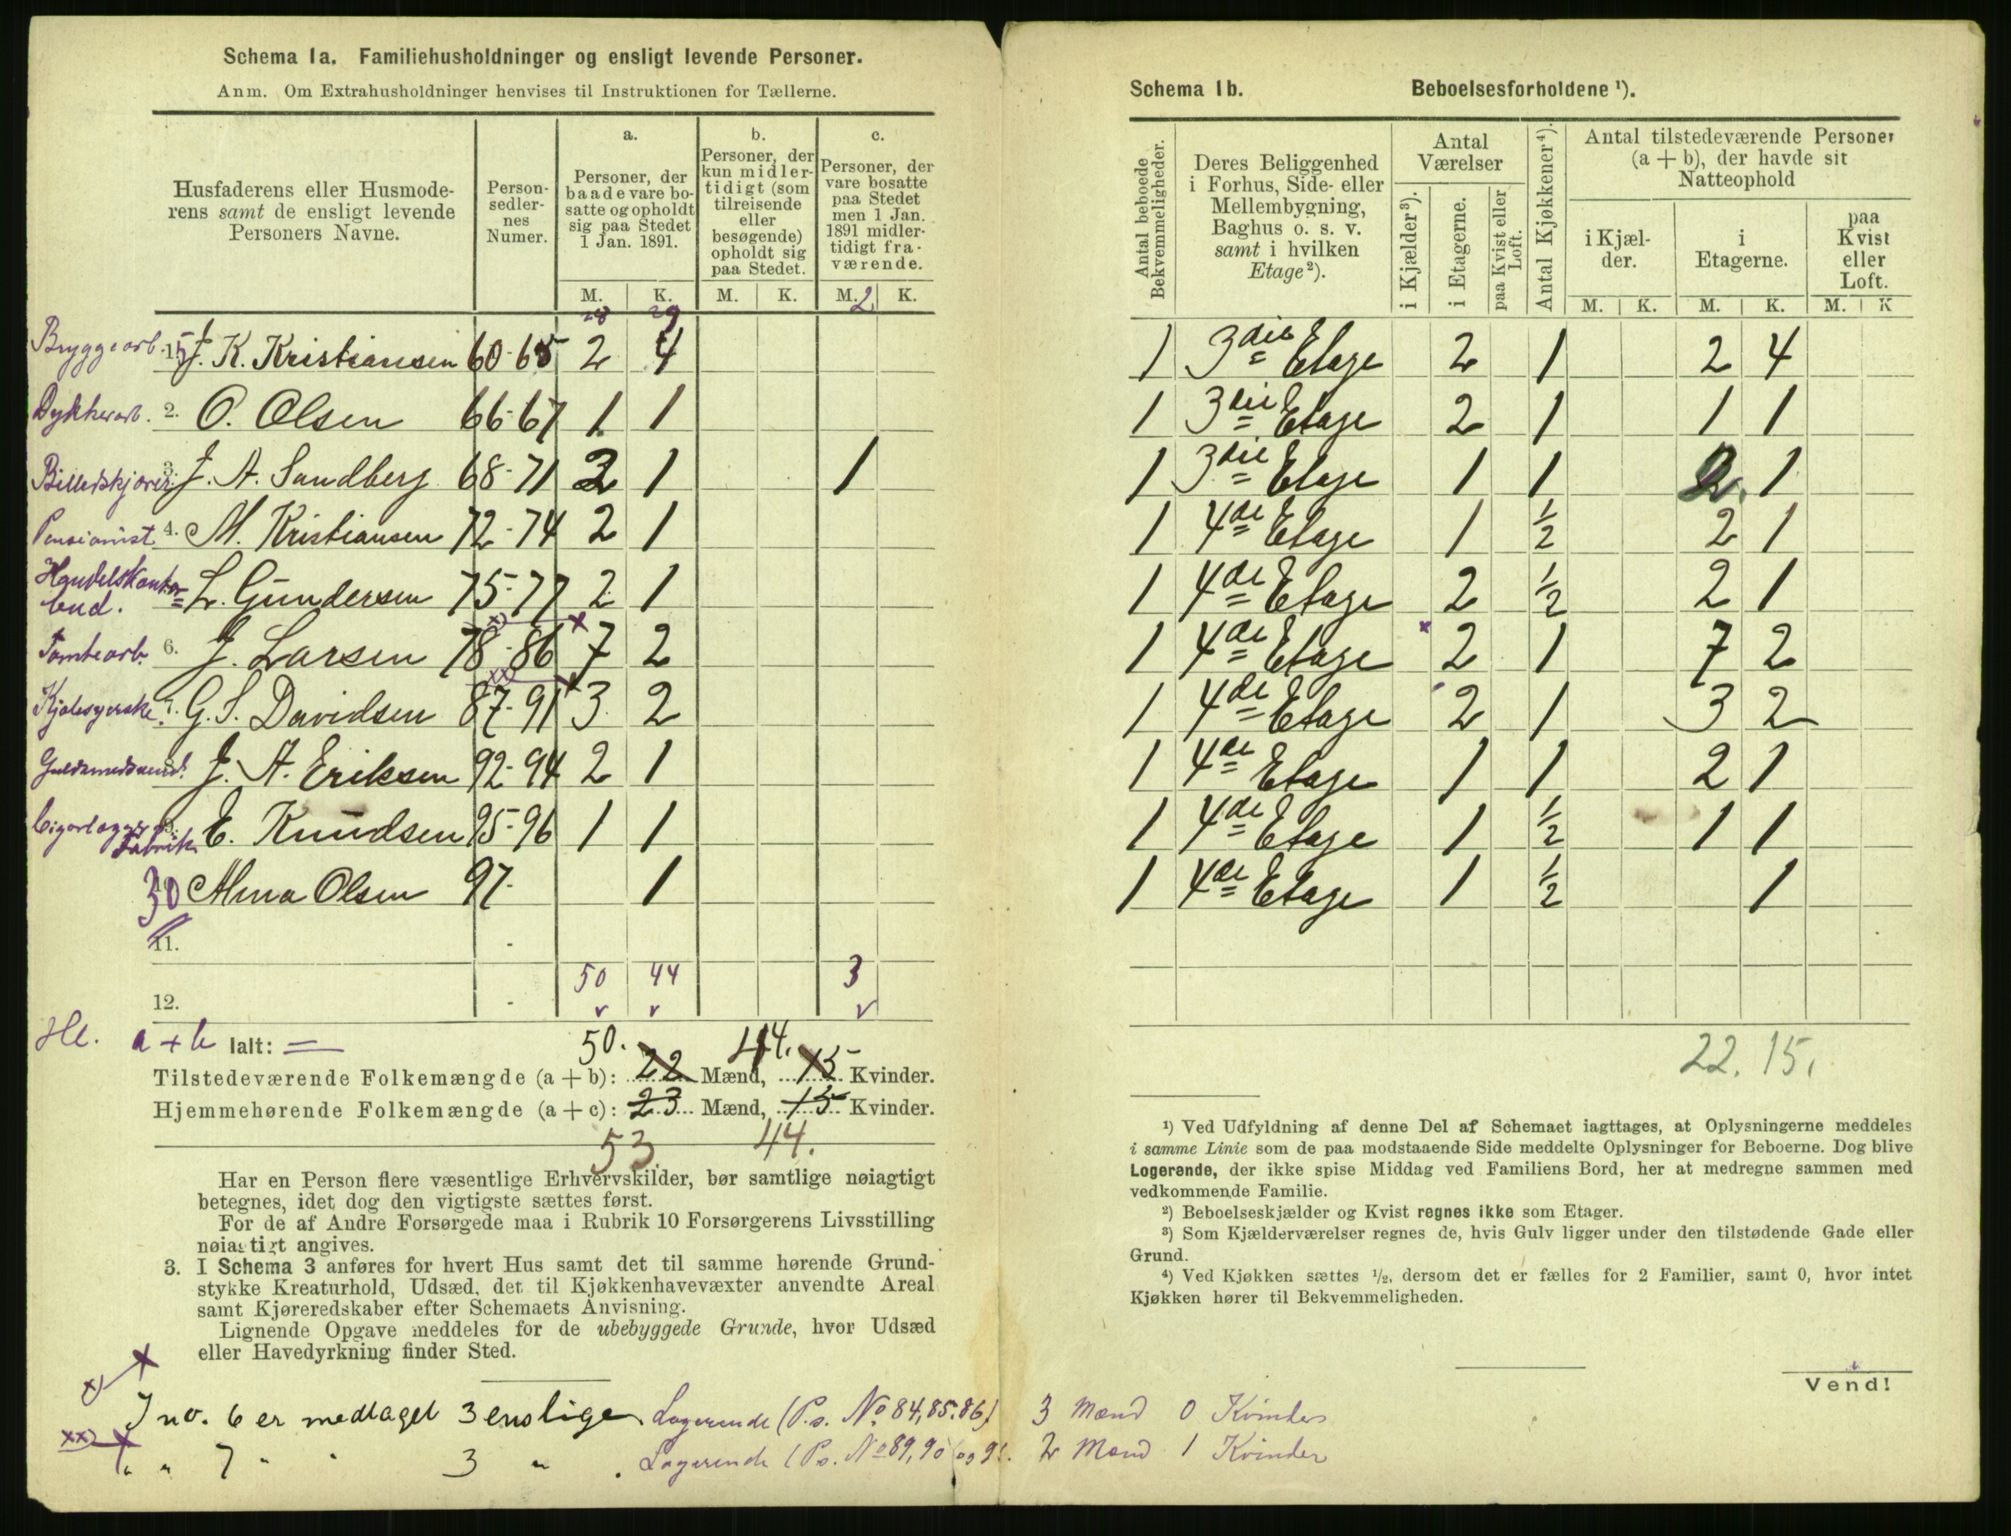 Schema 1a. Familiehusholdninger og ensligt levende Personer.
Anm. Om Extrahusholdninger henvises til Instruktionen for Tællerne.
Husfaderens eller Husmode-
rens samt de ensligt levende
Personers Navne.
Person-
sedler-
nes
Numer.
a.
Personer, der
baade vare bo-
satte og opholdt
sig paa Stedet
1 Jan. 1891.
b.
Personer, der
kun midler-
tidigt (som
tilreisende
eller
besøgende)
opholdt sig
paa Stedet.
c.
Personer, der
vare bosatte
paa Stedet
men 1 Jan.
1891 midler-
tidigt fra-
værende.
M. K. M. K. M. 2 K.
28 29
Bryggearb. 1. J. K. Kristiansen 60-65 2 4
Dykkerarb. 2. O. Olsen 66-67 1 1
Billedskjærer 3. J. A. Sandberg 68-71 2 1 1
Pensionist 4. M. Kristiansen 72-74 2 1
Handelskontor
bud. L. Gundersen 75-77 2 1
Tomtearb. 6. J. Larsen 78-86 7 2
Kjolesyerske 7. G. S. Davidsen 87-91 3 2
Guldsmedsvend. J. A. Eriksen 92-94 2 1
E. Knudsen 95-96 1 1
Fabrik
30 Alma Olsen 97- 1
11. -
50 44 3
12. -
Hl. a+b Ialt: =
50. 44.
Tilstedeværende Folkemængde (a + b): 22 Mænd, 15 Kvinder.
Hjemmehørende Folkemængde (a + c): 23 Mænd, 15 Kvinder.
53 44.
Har en Person flere væsentlige Erhvervskilder, bør samtlige nøiagtigt
betegnes, idet dog den vigtigste sættes først.
For de af Andre Forsørgede maa i Rubrik 10 Forsørgerens Livsstilling
nøiagtigt angives.
3. I Schema 3 anføres for hvert Hus samt det til samme hørende Grund-
stykke Kreaturhold, Udsæd, det til Kjøkkenhavevæxter anvendte Areal
samt Kjøreredskaber efter Schemaets Anvisning.
Lignende Opgave meddeles for de ubebyggede Grunde, hvor Udsæd
eller Havedyrkning finder Sted.
x) I no. 6 er medtaget 3 enslige Logerende (P.s. No 84, 85, 86) 3 Mænd 0 Kvinder
xx) " " 7 " " 3 " . Logerende (P.s. No 89, 90 og 91. 2 Mænd 1 Kvinder
Schema 1b. Beboelsesforholdene ¹).
Antal beboede
Bekvemmeligheder.
Deres Beliggenhed
i Forhus, Side- eller
Mellembygning,
Baghus o. s. v.
samt i hvilken
Etage ²).
Antal
Værelser
i Kjælder ³).
i Etagerne.
paa Kvist eller
Loft.
Antal Kjøkkener ⁴).
Antal tilstedeværende Personer
(a + b), der havde sit
Natteophold
i Kjæl-
der.
i
Etagerne.
paa
Kvist
eller
Loft.
M. K. M. K. M. K
1 3die Etage 2 1 2 4
1 3die Etage 2 1 1 1
1 3die Etage 1 1 2. 1
1 4de Etage 1 ½ 2 1
1 4de Etage 2 ½ 2 1
1 4de Etage x 2 1 7 2
1 4de Etage 2 1 3 2
1 4de Etage 1 1 2 1
1 4de Etage 1 ½ 1 1
1 4de Etage 1 ½ 1
22. 15.
¹) Ved Udfyldning af denne Del af Schemaet iagttages, at Oplysningerne meddeles
i samme Linie som de paa modstaaende Side meddelte Oplysninger for Beboerne. Dog blive
Logerende, der ikke spise Middag ved Familiens Bord, her at medregne sammen med
vedkommende Familie.
²) Beboelseskjælder og Kvist regnes ikke som Etager.
³) Som Kjælderværelser regnes de, hvis Gulv ligger under den tilstødende Gade eller
Grund.
⁴) Ved Kjøkken sættes ¹/₂, dersom det er fælles for 2 Familier, samt 0, hvor intet
Kjøkken hører til Bekvemmeligheden.
Vend!